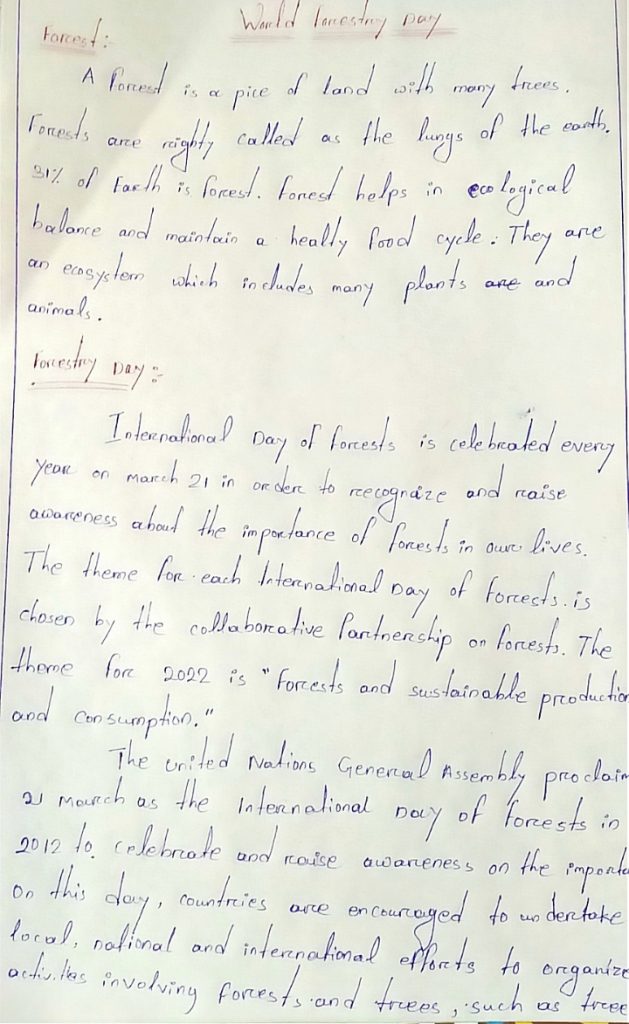 World Forestry Day
Forest :-
A Forest is a pice of land with many trees.
Forests are rightly called as the lungs of the earth.
31% of Earth is forest. Forest helps in ecological
balance and maintain a healty food cycle. They are
an ecosystem which includes many plants are and
animals.
Forestry Day :-
International Day of forests is celebrated every
year on march 21 in order to recognize and raise
awareness about the importance of forests in our lives.
The theme for each International Day of Forests is
chosen by the collaborative Partnership on forests. The
theme for 2022 is "Forests and sustainable production
and consumption."
The united Nations General Assembly proclaim
21 march as the International Day of Forests in
2012 to celebrate and raise awareness on the importa
On this day, countries are encouraged to undertake
local, national and international efforts to organize
activities involving forests and trees, such as tree